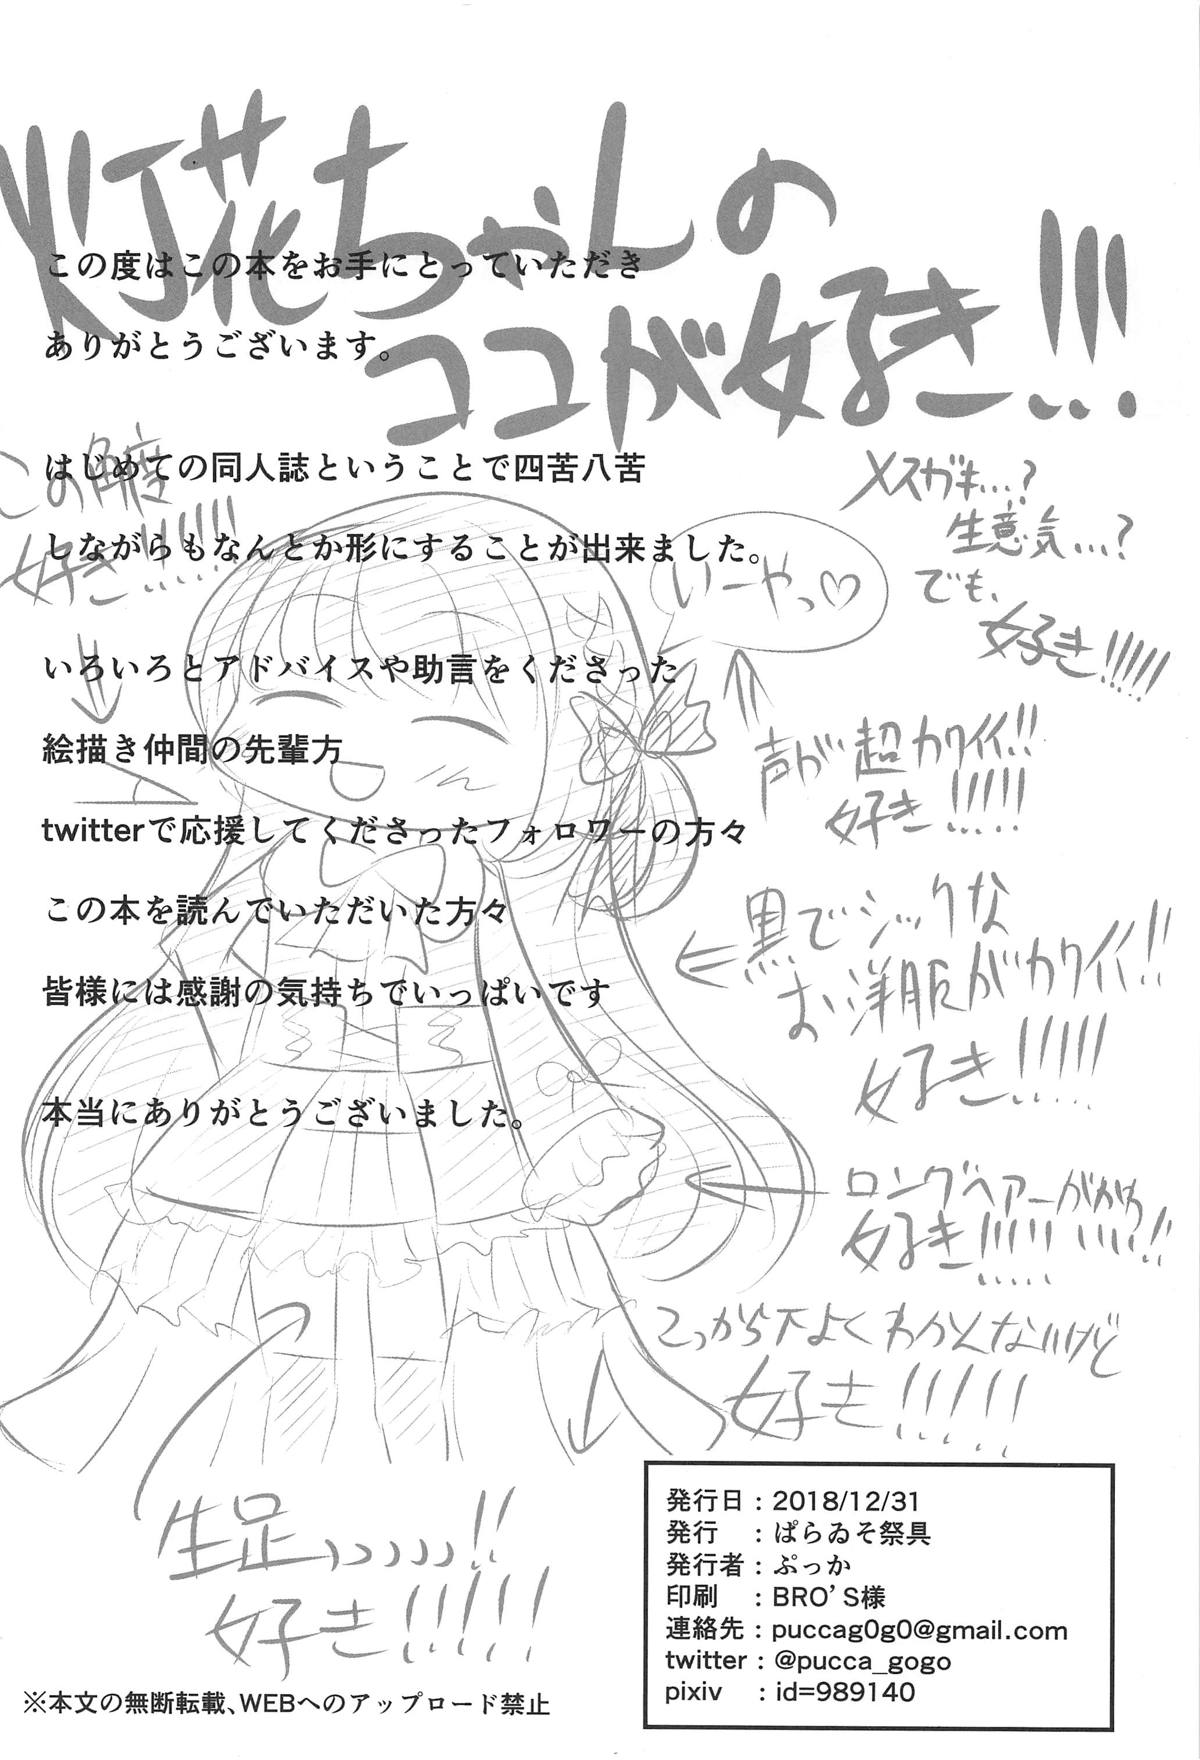 灯花ちゃんの
ココが好き!!!
この度はこの本をお手にとっていただき
ありがとうございます。
はじめての同人誌ということで四苦八苦
しながらもなんとか形にすることが出来ました。
いろいろとアドバイスや助言をくださった
絵描き仲間の先輩方
twitterで応援してくださったフォロワーの方々
この本を読んでいただいた方々
皆様には感謝の気持ちでいっぱいです
本当にありがとうございました。
この角度
好き!!!!!!
いーやっ♡
メスガキ…?
生意気…?
でも、
好き!!!!!
声が超カワイイ!!
好き!!!!!
黒でシックな
お洋服がカワイイ!!
好き!!!!!
ロングヘアーがかわ
好き!!!!!
こっから下よくわかんないけど
好き!!!!!
生足!!
好き!!!!!
発行日：2018/12/31
発行　：ぱらゐそ祭具
発行者：ぷっか
印刷　：BRO'S様
連絡先：puccag0g0@gmail.com
twitter：@pucca_gogo
pixiv　：id=989140
※本文の無断転載、WEBへのアップロード禁止